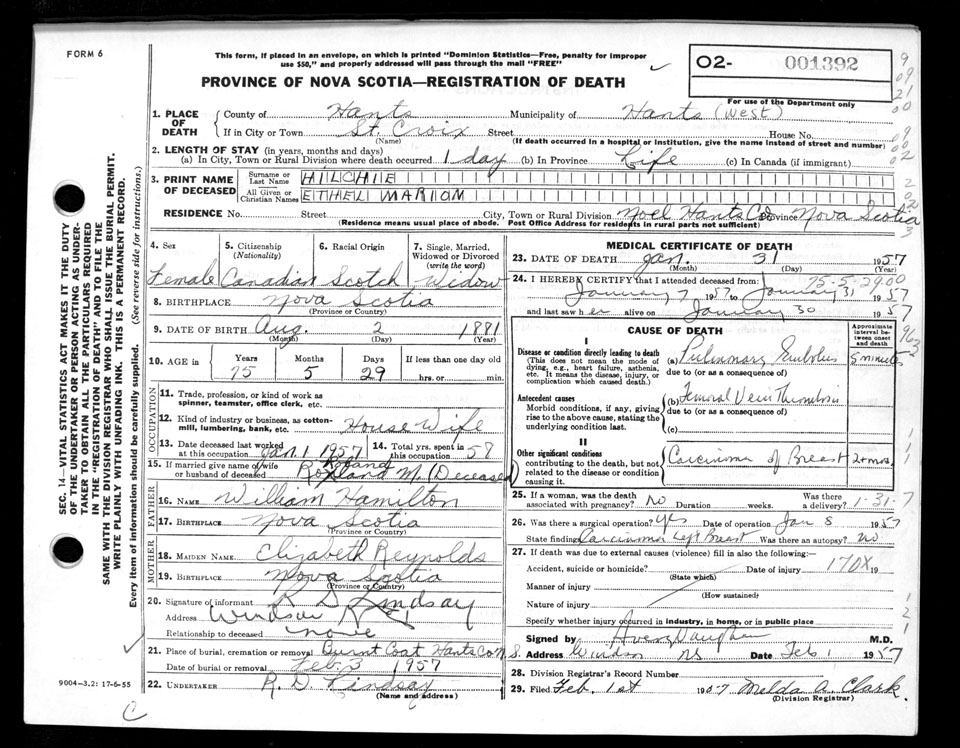 FORM 6
This form, if placed in an envelope, on which is printed "Dominion Statistics—Free, penalty for improper
use $50," and properly addressed will pass through the mail "FREE"
PROVINCE OF NOVA SCOTIA—REGISTRATION OF DEATH
O2- 001392
For use of the Department only
1. PLACE OF DEATH { County of Hants Municipality of Hants (West)
If in City or Town St. Croix Street House No.
(Name) (If death occurred in a hospital or institution, give the name instead of street and number)
2. LENGTH OF STAY (in years, months and days)
(a) In City, Town or Rural Division where death occurred 1 day (b) In Province Life (c) In Canada (if immigrant)
3. PRINT NAME OF DECEASED { Surname or Last Name HILCHIE
All Given or Christian Names ETHEL MARION
RESIDENCE No. Street City, Town or Rural Division Noel Hants Co. Province Nova Scotia
(Residence means usual place of abode. Post Office Address for residents in rural parts not sufficient)
4. Sex 5. Citizenship (Nationality) 6. Racial Origin 7. Single, Married, Widowed or Divorced (write the word)
Female Canadian Scotch Widow
8. BIRTHPLACE Nova Scotia
(Province or Country)
9. DATE OF BIRTH Aug. 2 1881
(Month) (Day) (Year)
10. AGE in Years Months Days If less than one day old
75 5 29 hrs. or min.
OCCUPATION
11. Trade, profession, or kind of work as
spinner, teamster, office clerk, etc.
12. Kind of industry or business, as cotton-
mill, lumbering, bank, etc. House Wife
13. Date deceased last worked
at this occupation Jan. 1 1957 14. Total yrs. spent in
this occupation 58
15. If married give name of wife
or husband of deceased Roland M. (Deceased)
FATHER
16. NAME William Hamilton
17. BIRTHPLACE Nova Scotia
(Province or Country)
MOTHER
18. MAIDEN NAME Elizabeth Reynolds
19. BIRTHPLACE Nova Scotia
(Province or Country)
20. Signature of informant R D Lindsay
Address Windsor
Relationship to deceased none
21. Place of burial, cremation or removal Burnt Coat Hants Co N.S.
Date of burial or removal Feb. 3 1957
22. UNDERTAKER R. D. Lindsay
(Name and address)
MEDICAL CERTIFICATE OF DEATH
23. DATE OF DEATH Jan. 31 1957
(Month) (Day) (Year)
24. I HEREBY CERTIFY that I attended deceased from:
75-5-29.00
January 7 1957 to January 31 1957
and last saw her alive on January 30 1957
CAUSE OF DEATH
Approximate interval between onset and death
I
Disease or condition directly leading to death
(This does not mean the mode of dying, e.g., heart failure, asthenia, etc. It means the disease, injury, or complication which caused death.)
(a) Pulmonary Embolus 5 minutes
due to (or as a consequence of)
Antecedent causes
Morbid conditions, if any, giving rise to the above cause, stating the underlying condition last.
(b) Femoral Vein Thrombosis
due to (or as a consequence of)
(c)
II
Other significant conditions
contributing to the death, but not related to the disease or condition causing it.
Carcinoma of Breast 2+ mos
25. If a woman, was the death
associated with pregnancy? No Duration weeks. Was there
a delivery? 1-31-7
26. Was there a surgical operation? Yes Date of operation Jan 8 1957
State findings Carcinoma Left Breast Was there an autopsy? No
27. If death was due to external causes (violence) fill in also the following:—
Accident, suicide or homicide? Date of injury 170X 19
(State which)
Manner of injury
(How sustained)
Nature of injury
Specify whether injury occurred in industry, in home, or in public place
Signed by M.D.
Address Windsor NS Date Feb 1 1957
28. Division Registrar's Record Number
29. Filed Feb. 1st 1957 Melda A. Clark.
(Division Registrar)
SEC. 14—VITAL STATISTICS ACT MAKES IT THE DUTY
OF THE UNDERTAKER OR PERSON ACTING AS UNDER-
TAKER TO OBTAIN ALL THE PARTICULARS REQUIRED
IN THE "REGISTRATION OF DEATH" AND TO FILE THE
SAME WITH THE DIVISION REGISTRAR WHO SHALL ISSUE THE BURIAL PERMIT.
WRITE PLAINLY WITH UNFADING INK. THIS IS A PERMANENT RECORD.
Every item of information should be carefully supplied. (See reverse side for instructions.)
9004-3.2: 17-6-55